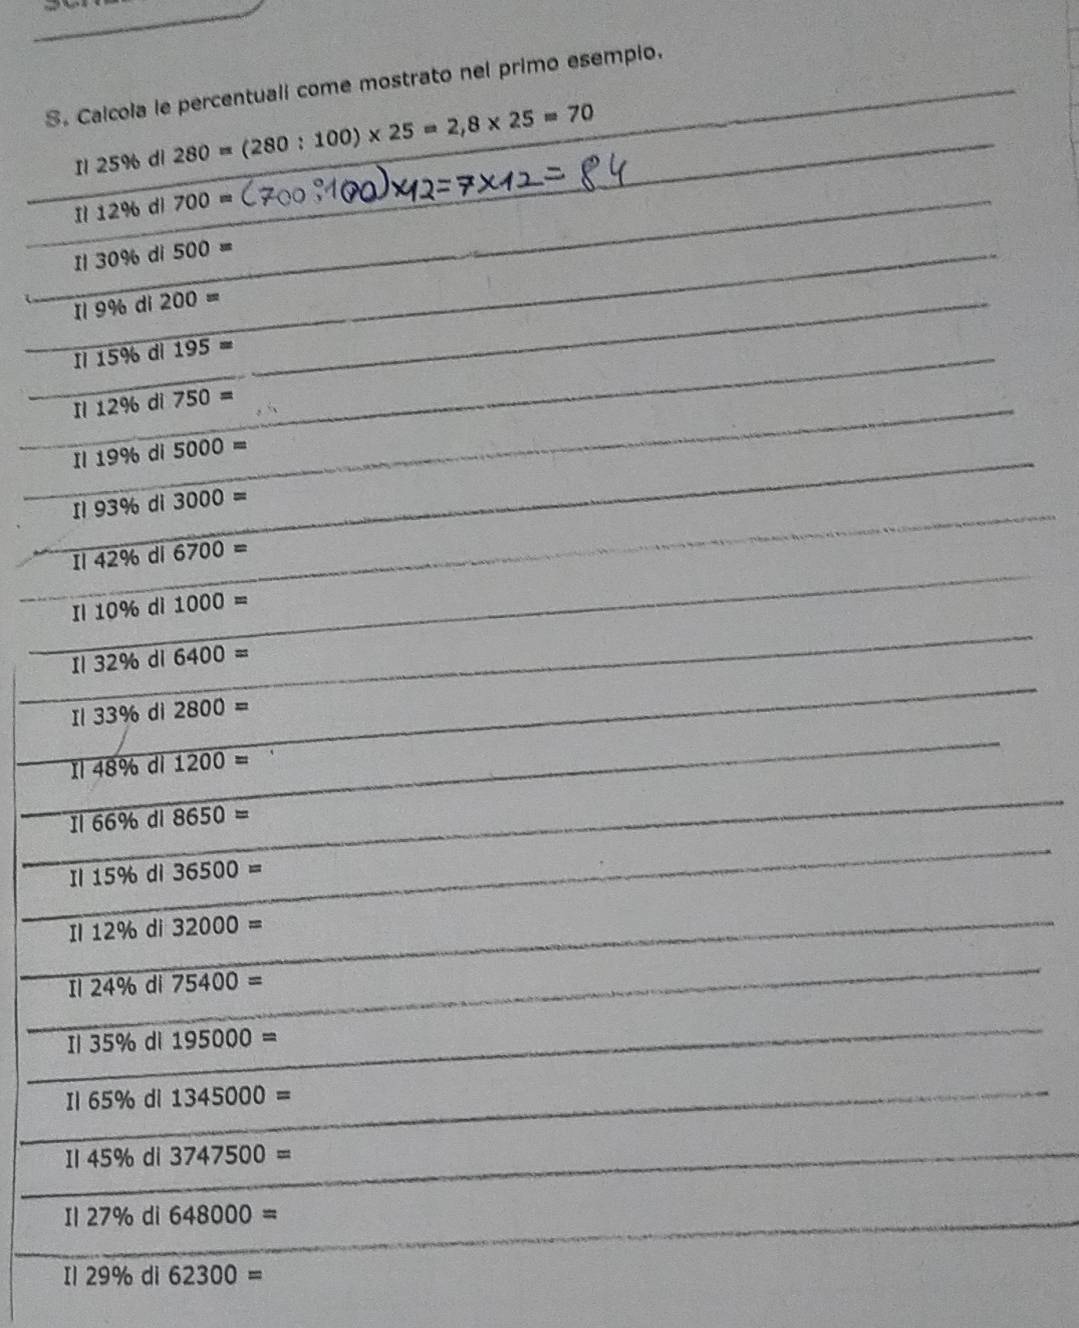 8. Calcola le percentuali come mostrato nel primo esempio.
Il 25% di 280 = (280 : 100) x 25 = 2,8 x 25 = 70
Il 12% di 700 = (700:100)x12=7x12=84
Il 30% di 500 =
Il 9% di 200 =
Il 15% di 195 =
Il 12% di 750 =
Il 19% di 5000 =
Il 93% di 3000 =
Il 42% di 6700 =
Il 10% di 1000 =
Il 32% di 6400 =
Il 33% di 2800 =
Il 48% di 1200 =
Il 66% di 8650 =
Il 15% di 36500 =
Il 12% di 32000 =
Il 24% di 75400 =
Il 35% di 195000 =
Il 65% di 1345000 =
Il 45% di 3747500 =
Il 27% di 648000 =
Il 29% di 62300 =